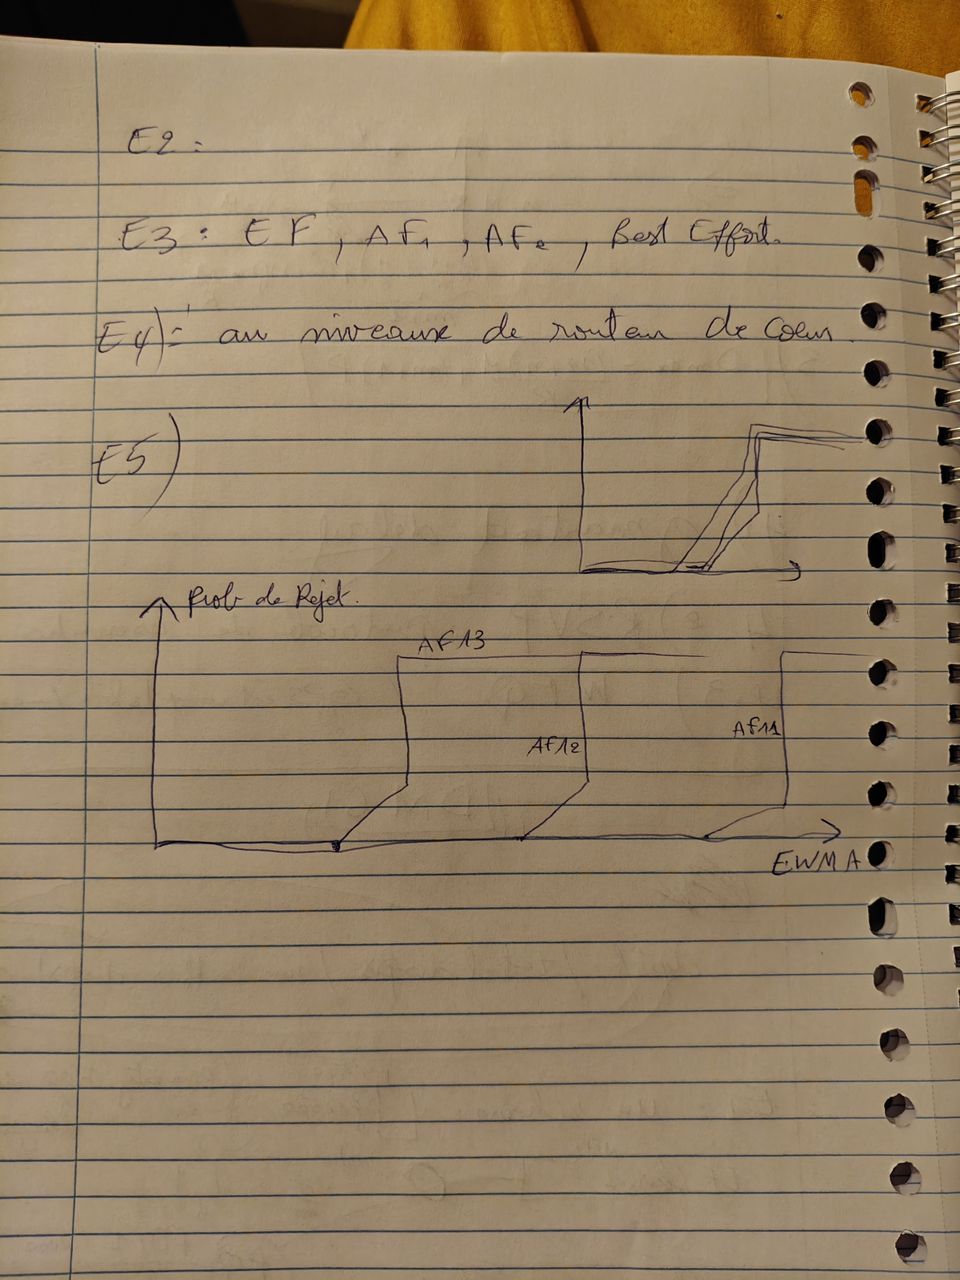 E2 :
E3 : EF, AF1, AF2, Best Effort.
E4) : au niveaux de routeur de coeur.
E5)
Prob de Rejet.
AF13
AF12
AF11
EWMA